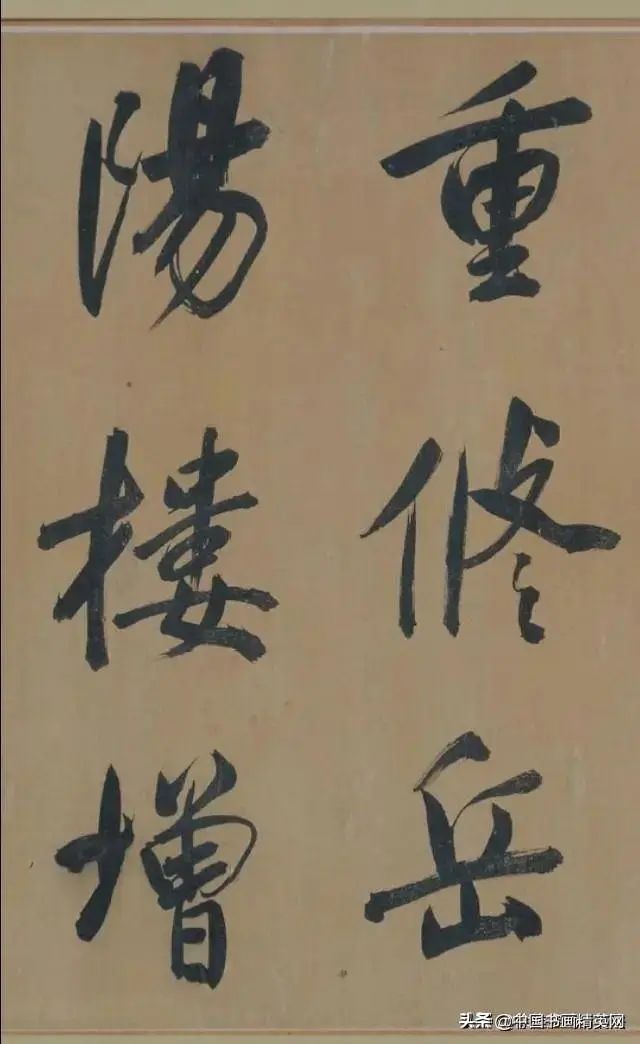 重修岳
陽樓增
头条 @中国书画精英网